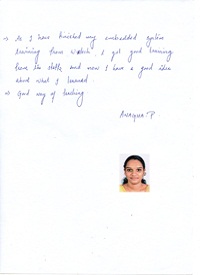 → As I have finished my embedded system
training from which I got good learning
from the staffs and now I have a good idea
about what I learned.
→ Good way of teaching
ANAGHA P